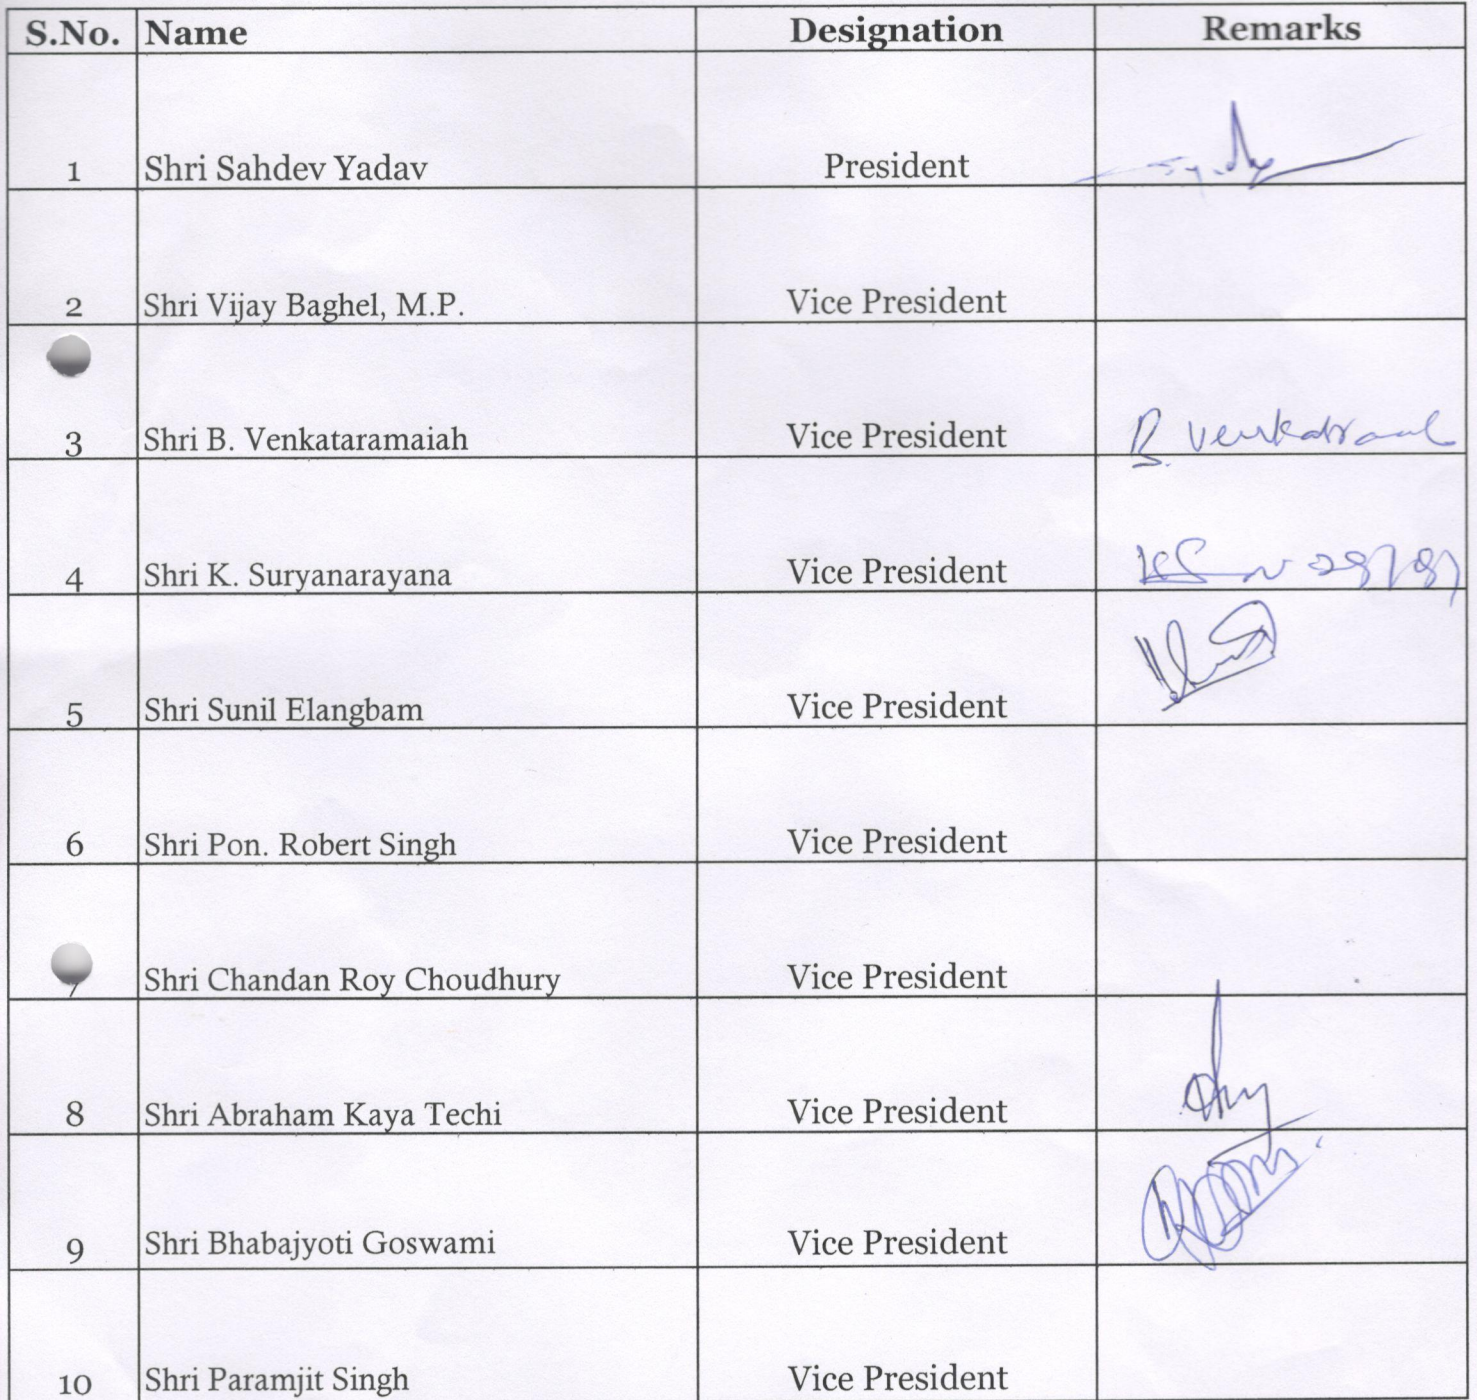 S.No. Name Designation Remarks
1 Shri Sahdev Yadav President
2 Shri Vijay Baghel, M.P. Vice President
3 Shri B. Venkataramaiah Vice President B. Venkatraal
4 Shri K. Suryanarayana Vice President
5 Shri Sunil Elangbam Vice President
6 Shri Pon. Robert Singh Vice President
Shri Chandan Roy Choudhury Vice President
8 Shri Abraham Kaya Techi Vice President
9 Shri Bhabajyoti Goswami Vice President
10 Shri Paramjit Singh Vice President